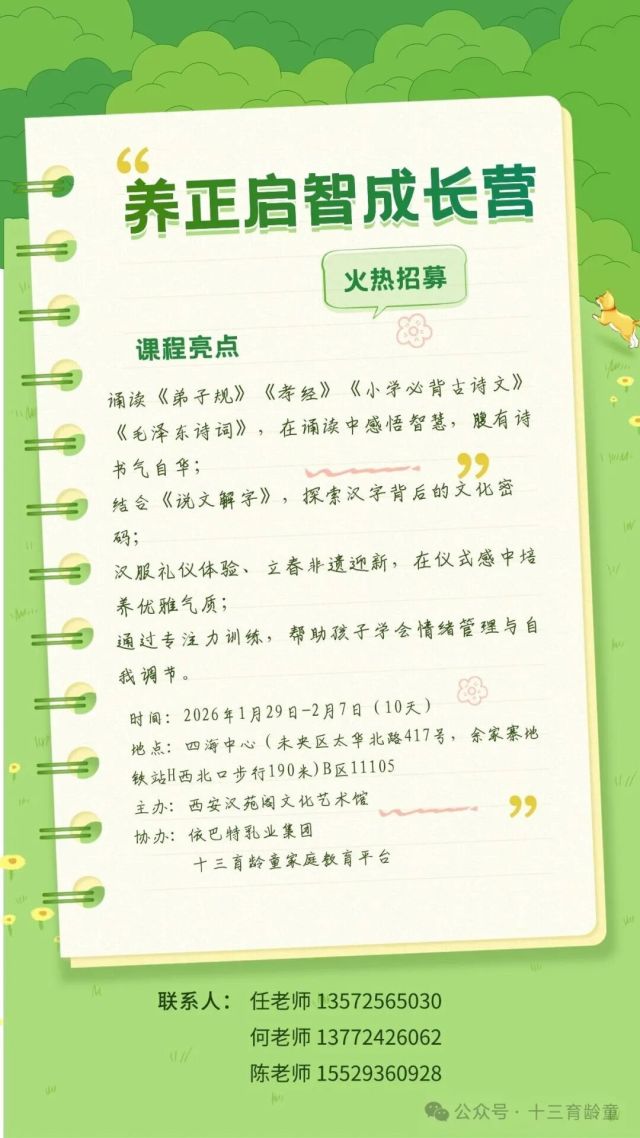 养正启智成长营
火热招募
课程亮点
诵读《弟子规》《孝经》《小学必背古诗文》
《毛泽东诗词》，在诵读中感悟智慧，腹有诗
书气自华；
结合《说文解字》，探索汉字背后的文化密
码；
汉服礼仪体验、立春非遗迎新，在仪式感中培
养优雅气质；
通过专注力训练，帮助孩子学会情绪管理与自
我调节。
时间：2026年1月29日-2月7日（10天）
地点：四海中心（未央区太华北路417号，余家寨地
铁站H西北口步行190米)B区11105
主办：西安汉苑阁文化艺术馆
协办：依巴特乳业集团
十三育龄童家庭教育平台
联系人： 任老师 13572565030
何老师 13772426062
陈老师 15529360928
公众号 · 十三育龄童